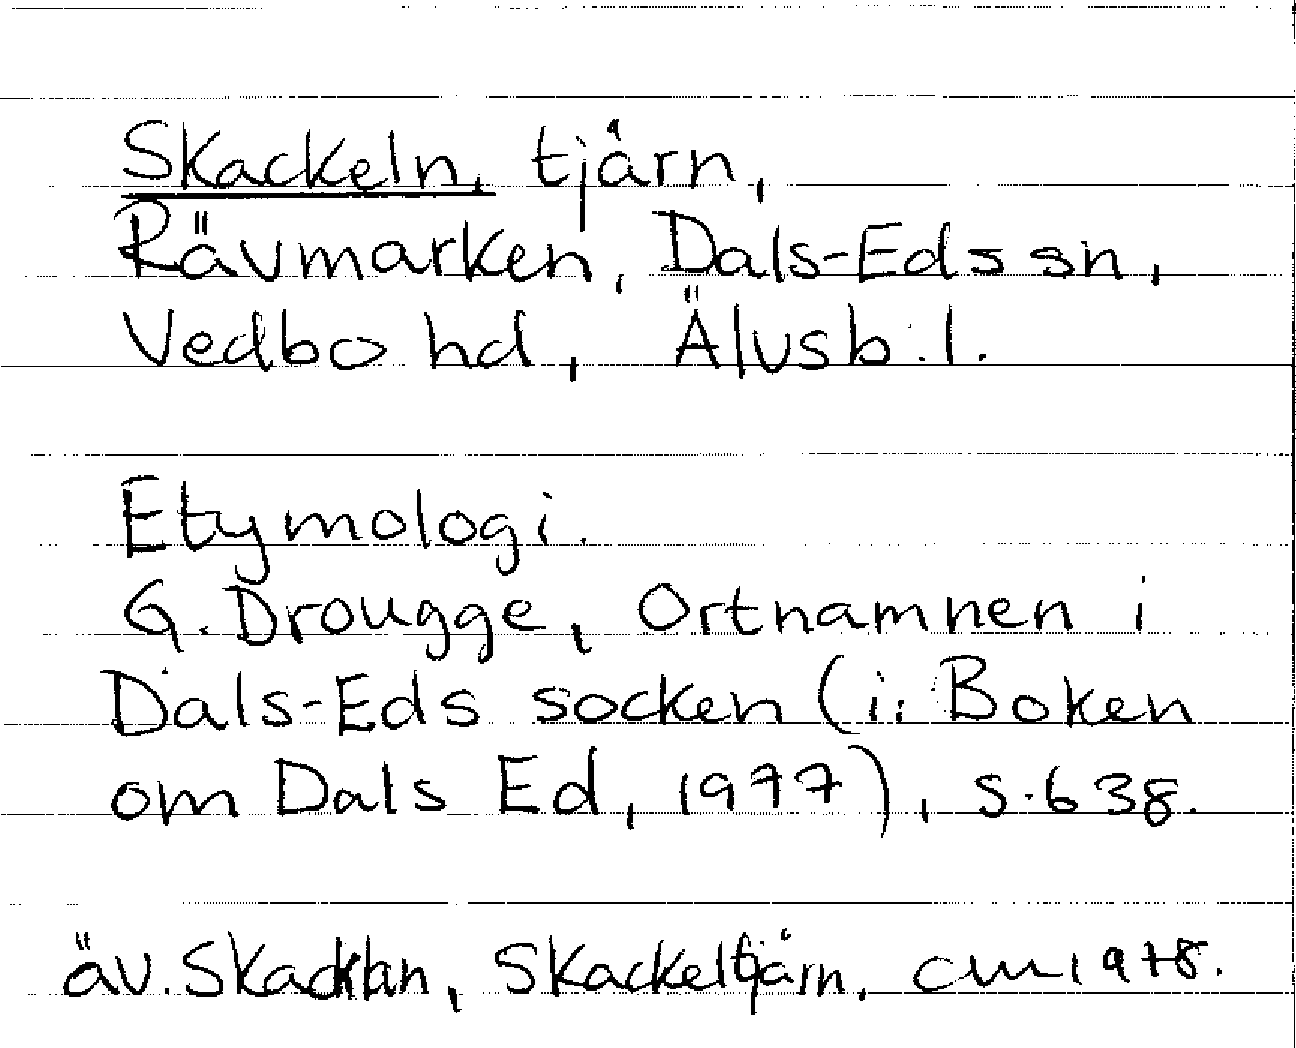 Skackeln, tjärn,
Rävmarken, Dals-Eds sn,
Vedbo hd, Älvsb. l.
Etymologi.
G. Drougge, Ortnamnen i
Dals-Eds socken (i: Boken
om Dals Ed, 1977), s. 638.
äv. Skacklan, Skackeltjärn, cm 1978.